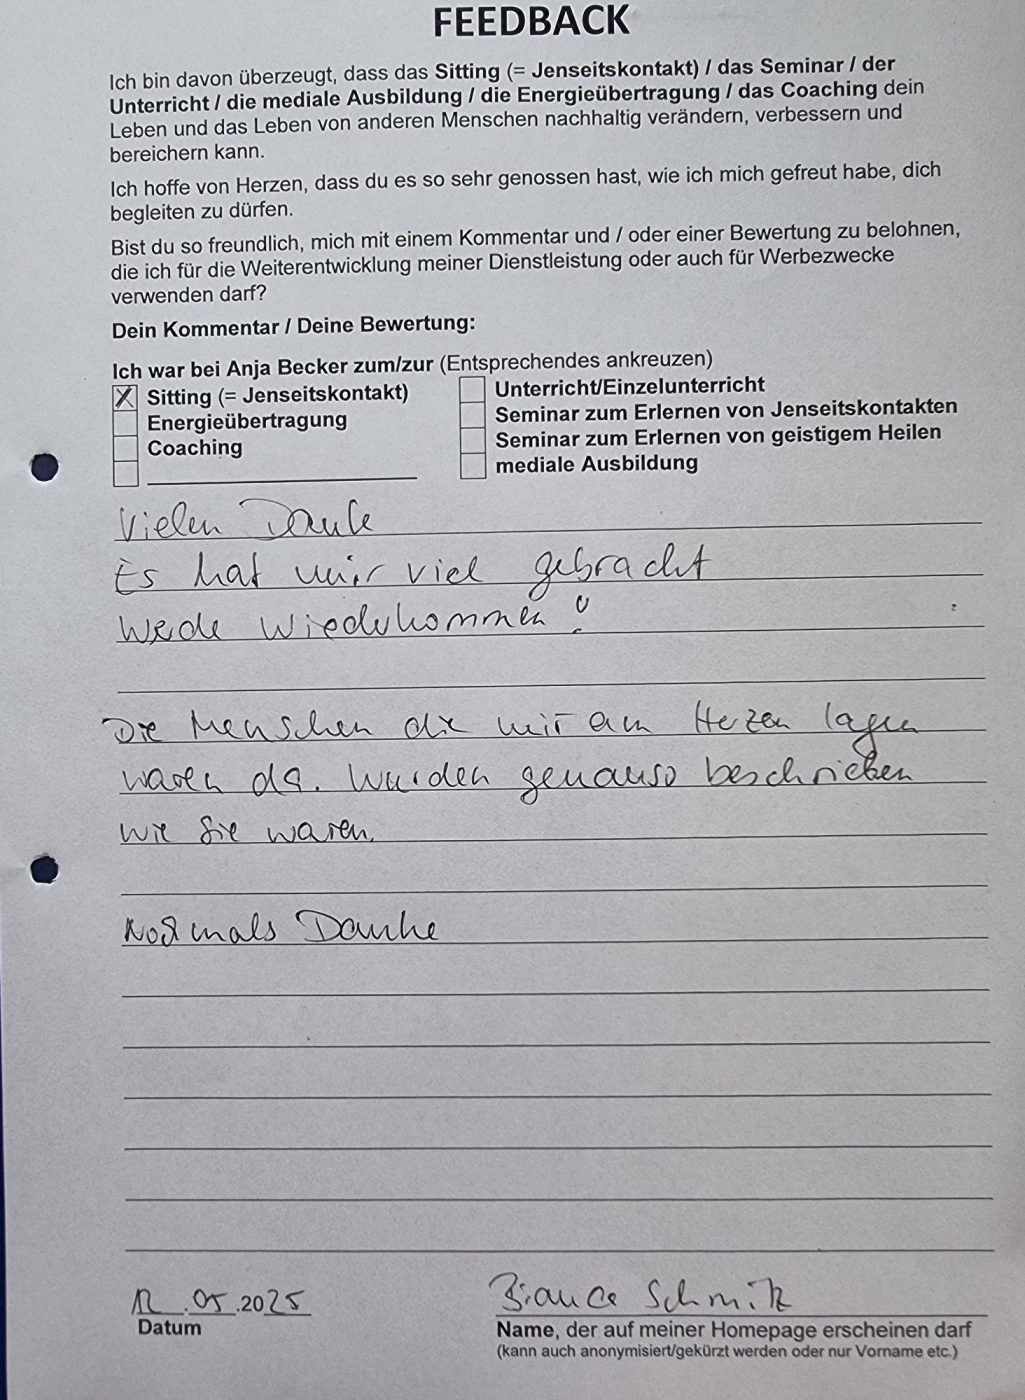 FEEDBACK
Ich bin davon überzeugt, dass das Sitting (= Jenseitskontakt) / das Seminar / der
Unterricht / die mediale Ausbildung / die Energieübertragung / das Coaching dein
Leben und das Leben von anderen Menschen nachhaltig verändern, verbessern und
bereichern kann.
Ich hoffe von Herzen, dass du es so sehr genossen hast, wie ich mich gefreut habe, dich
begleiten zu dürfen.
Bist du so freundlich, mich mit einem Kommentar und / oder einer Bewertung zu belohnen,
die ich für die Weiterentwicklung meiner Dienstleistung oder auch für Werbezwecke
verwenden darf?
Dein Kommentar / Deine Bewertung:
Ich war bei Anja Becker zum/zur (Entsprechendes ankreuzen)
X Sitting (= Jenseitskontakt)
Energieübertragung
Coaching
Unterricht/Einzelunterricht
Seminar zum Erlernen von Jenseitskontakten
Seminar zum Erlernen von geistigem Heilen
mediale Ausbildung
Vielen Danke
Es hat mir viel gebracht
Werde Wiederkommen!
Die Menschen die mir am Herzen lagen
waren da. Wurden genauso beschrieben
wie Sie waren.
Nochmals Danke
12.05.2025
Datum
Bianca Schmitz
Name, der auf meiner Homepage erscheinen darf
(kann auch anonymisiert/gekürzt werden oder nur Vorname etc.)